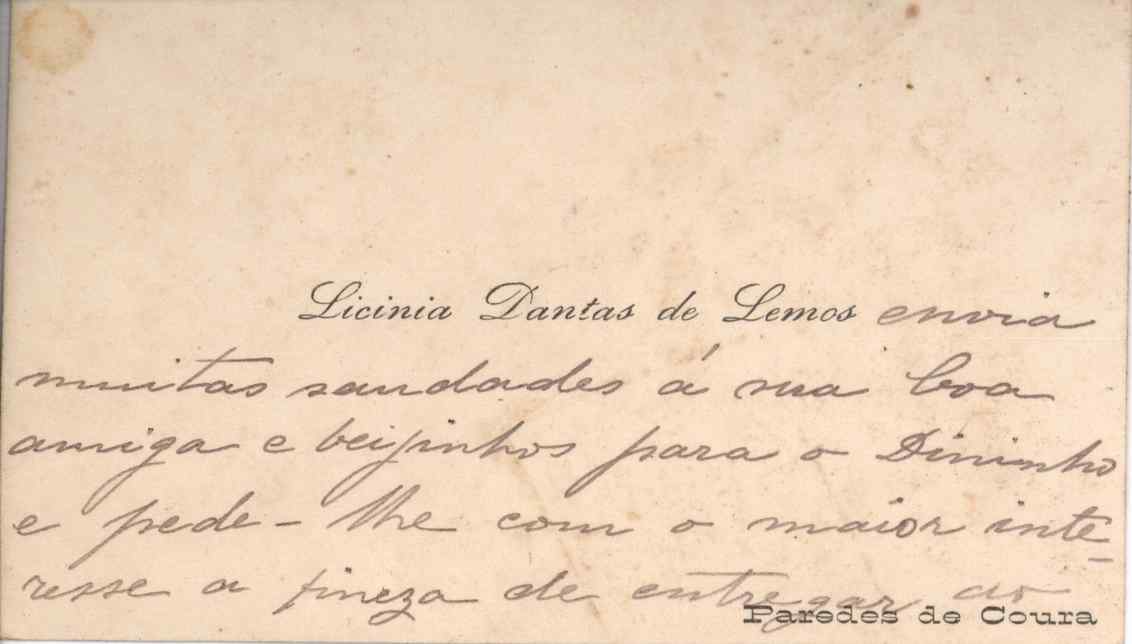 Licinia Dantas de Lemos envia
muitas saudades á sua boa
amiga e beijinhos para o Dininho
e pede-lhe com o maior inte-
resse a fineza de entregar ao
Paredes de Coura